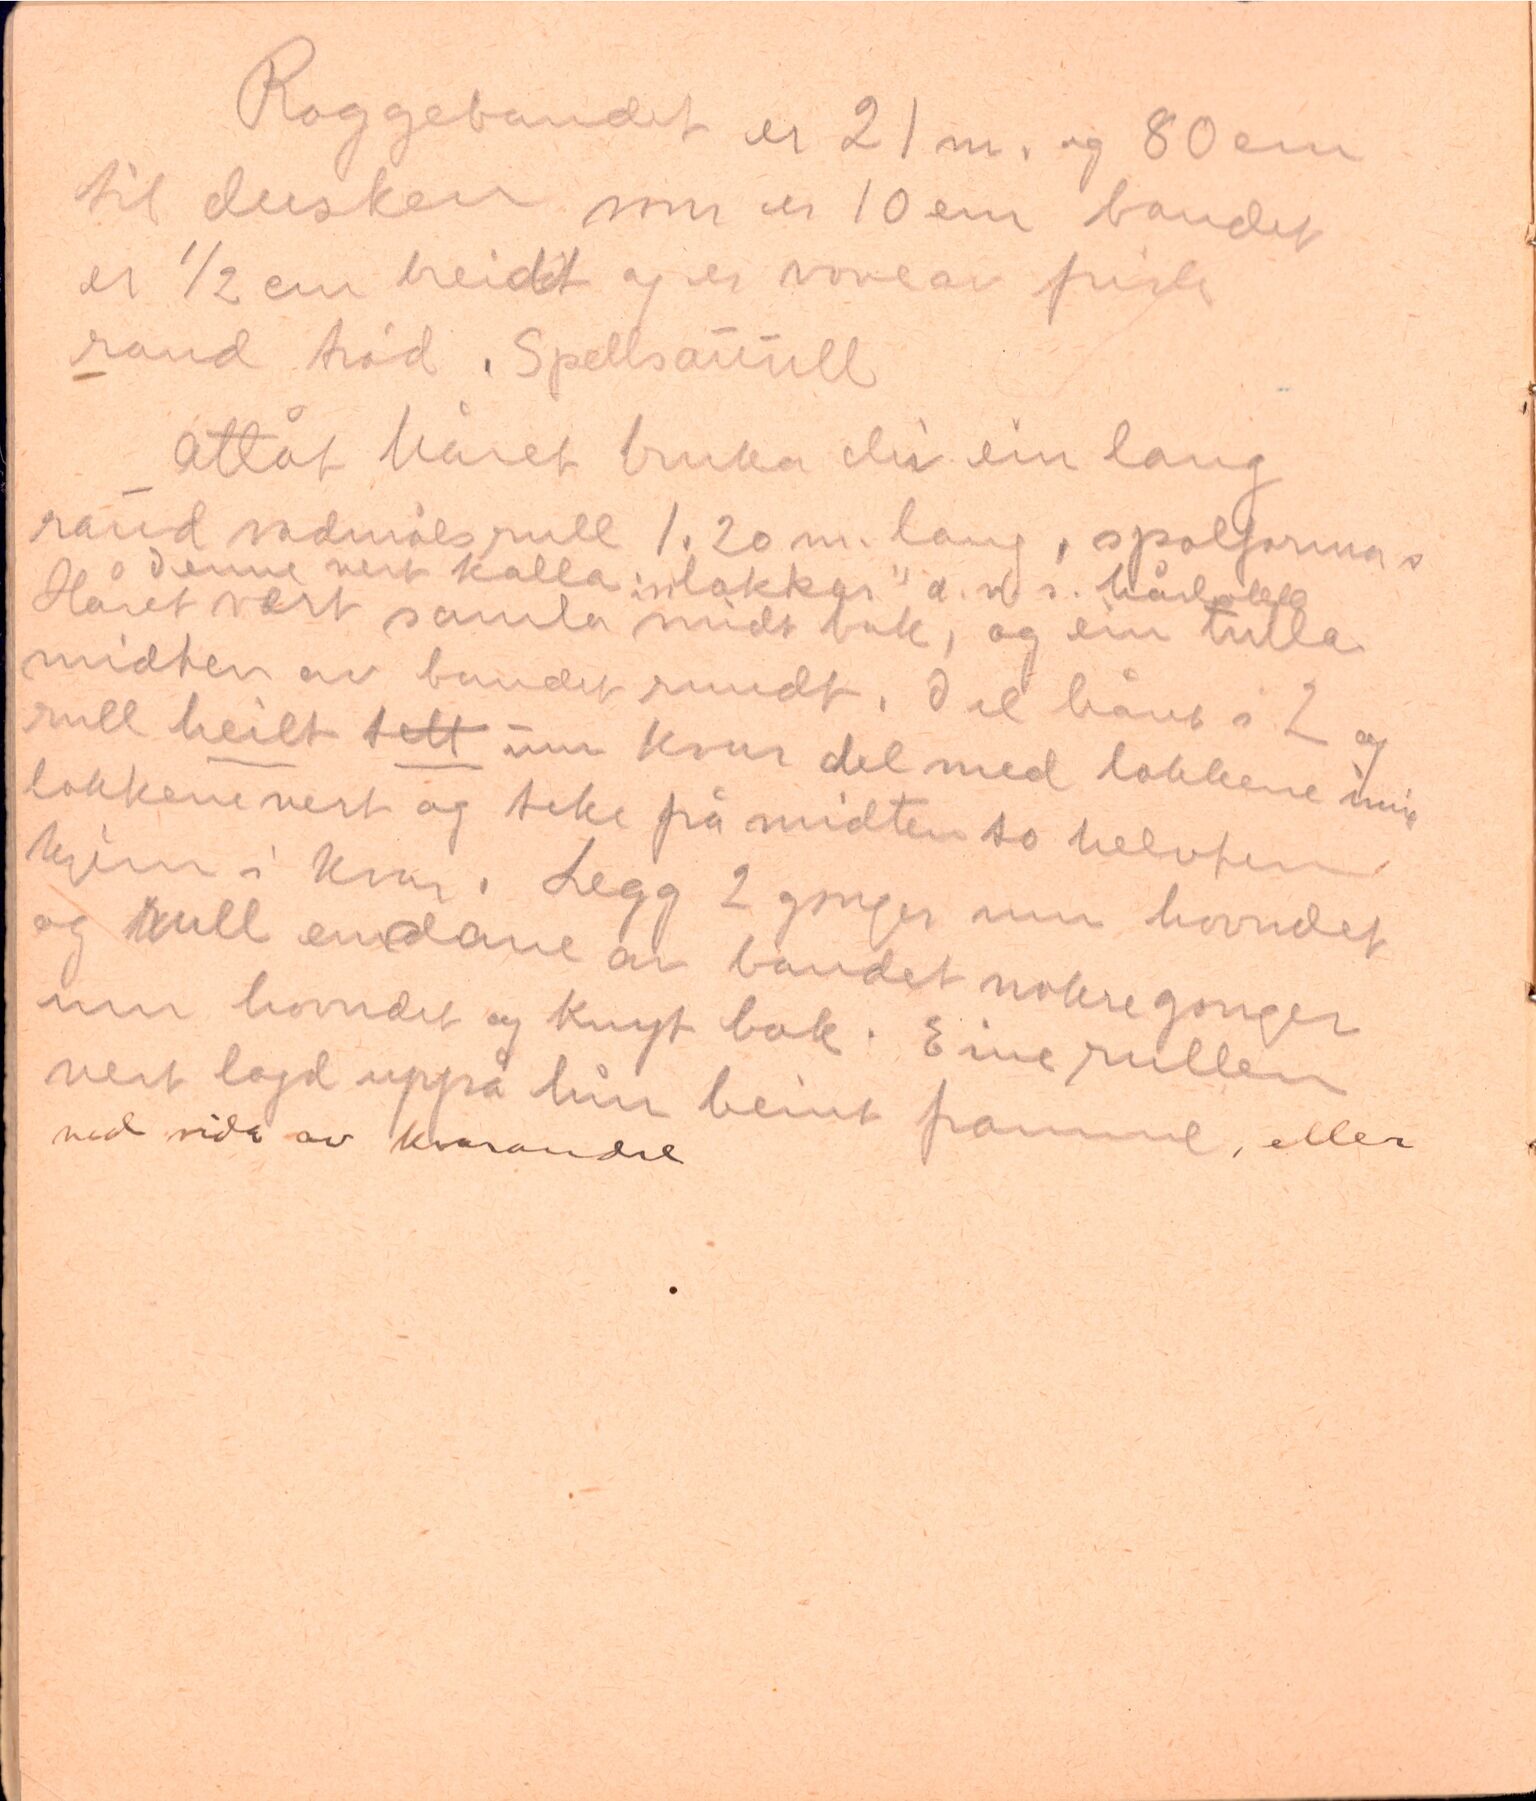 Roggebandet er 21 m. og 80 cm
til dusken som er 10 cm bandet
er 1/2 cm breidt og er vove av
raud tråd. Spellsauull
attåt håret bruka dei ein lang
raud vadmålsrull 1.20 m. lang, spolforma
Denne vert kalla "lokkar" d. v. s. hårlokk
Håret vært samla midt bak, og ein tulla
midten av bandet rundt. Del håret i 2 og
rull heilt tett um kvar del med lokkene inni
lokkene vert og teke på midten so helvten
kjem i kvar. Legg 2 gonger um hovudet
og rull endane av bandet nokre gonger
um hovudet og knyt bak. Eine rullen
vert lagd uppå hin beint framme, eller
ved sida av kvarandre